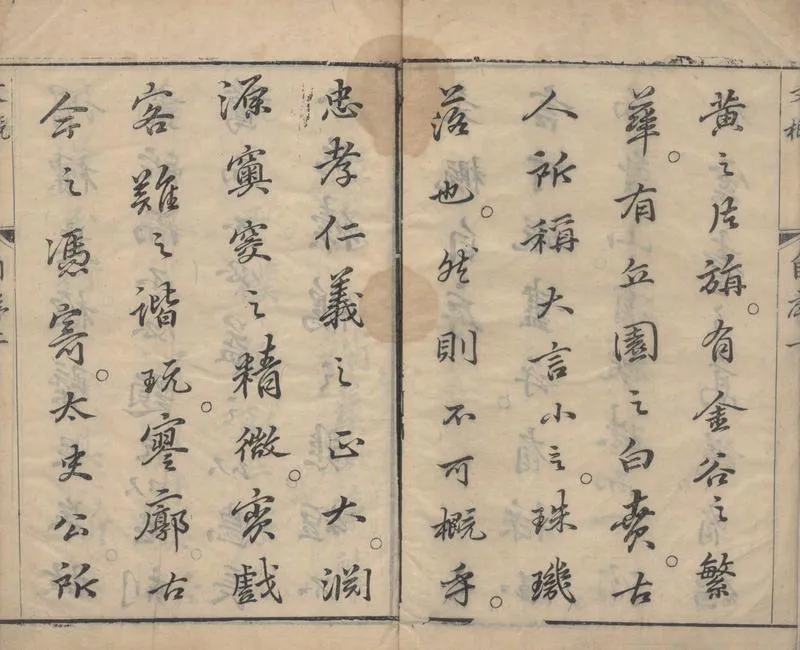 黄之片旃。有金谷之繁
華。有丘園之白賁。古
人所稱大言小言。珠璣
落也。然則不可概乎。
忠孝仁義之正大。淵
源奧窔之精微。賓戲
客難之諧玩。寥廓古
今之憑寄。太史公所